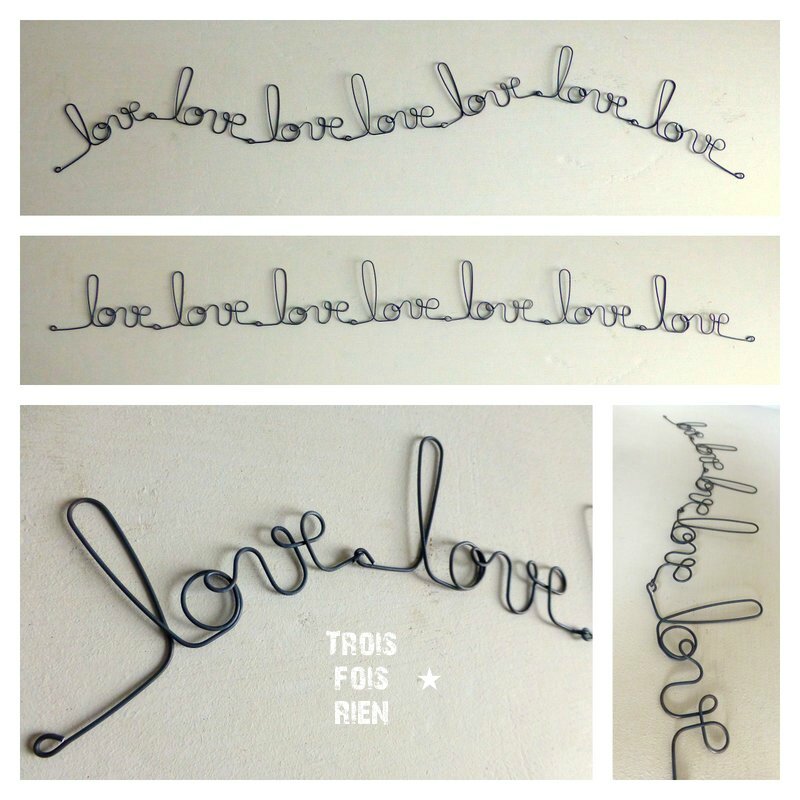 love love love love love love love
love love love love love love love
love love
TROIS
FOIS
RIEN
love love love love love love